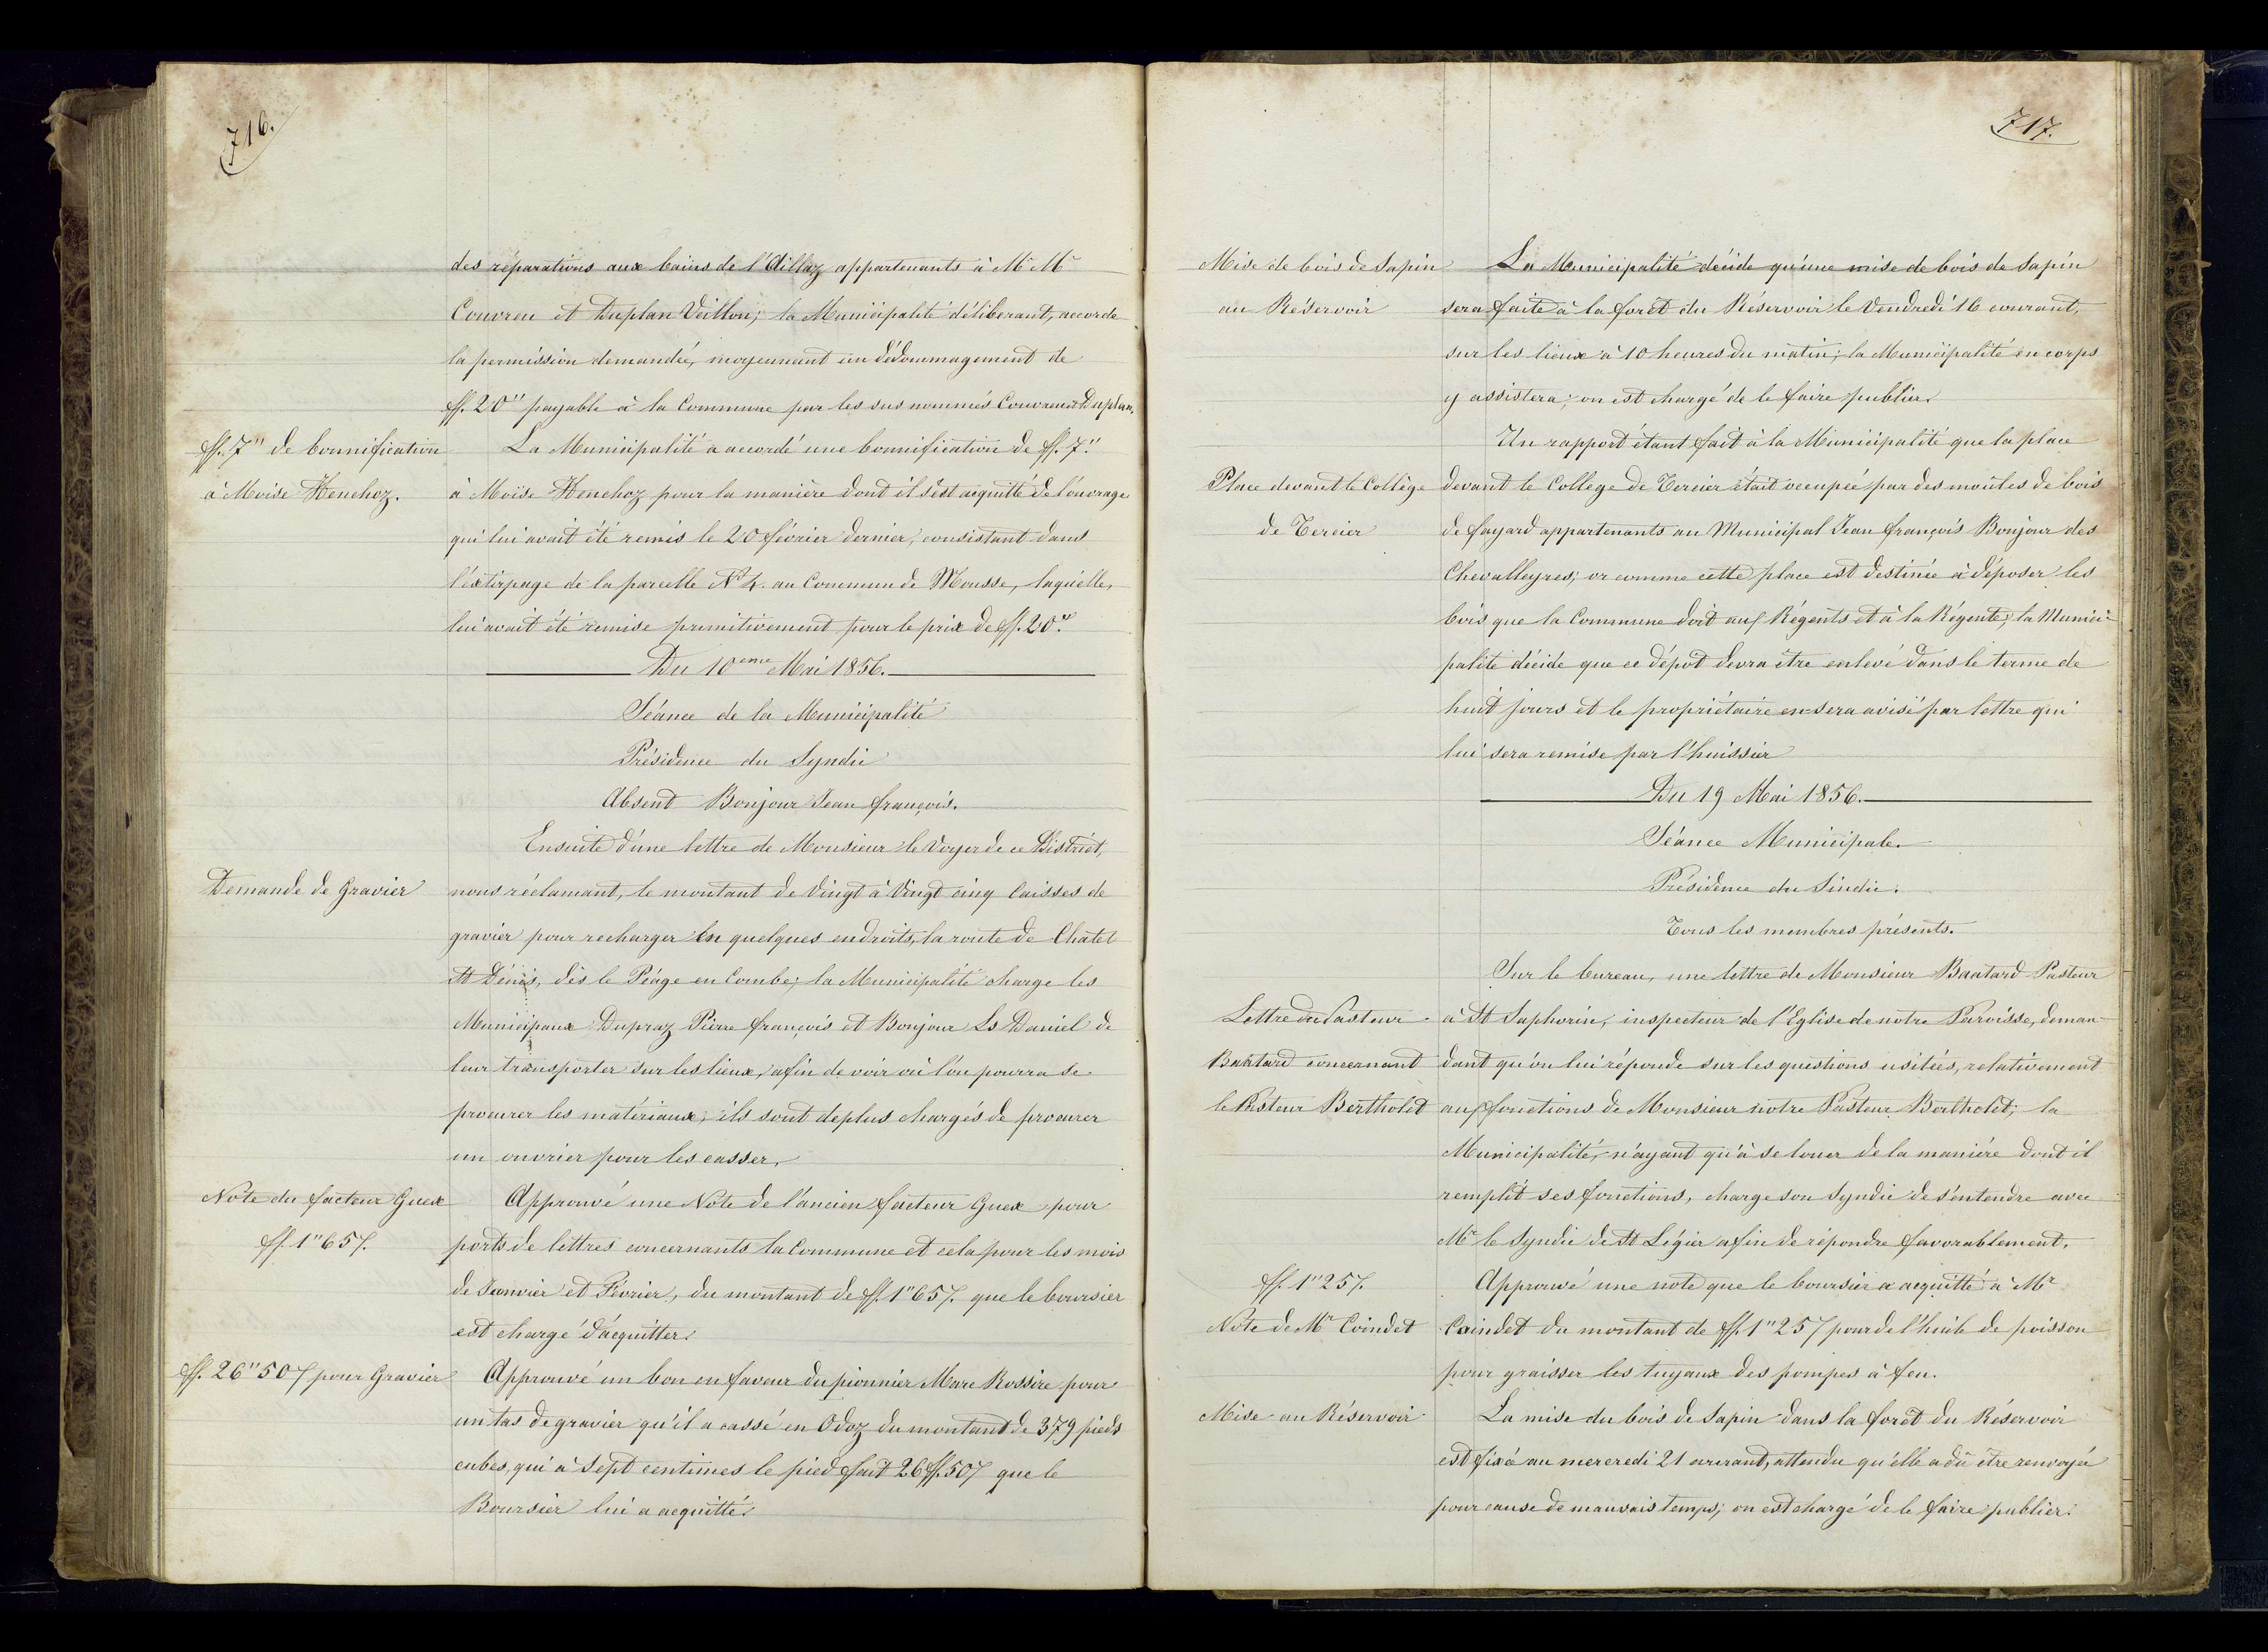 716.
des réparations aux bains de l'Aillaz appartenants à Mr Mr
Couvreu et Duplan Veillon; la Municipalité déliberant, accorde
la permission demandée, moyennant un dédommagement de
ff. 20" payable à la Commune par les sus nommés Couvreu et Duplan.
ff. 7" de bonnification
à Moïse Henchoz.
La Municipalité a accordé une bonnification de ff. 7."
à Moïse Henchoz pour la manière dont il s'est acquitté de l'ouvrage
qui lui avait été remis le 20 février dernier, consistant dans
l'extirpage de la parcelle No 4. au Commun de Mousse, laquelle,
lui avait été remise primitivement pour le prix de ff. 20."
Du 10eme Mai 1856.
Séance de la Municipalité
Présidence du Syndic
Absent Bonjour Jean françois.
Demande de Gravier
Ensuite d'une lettre de Monsieur le Voyer de ce District,
nous réclamant, le montant de Vingt à Vingt cinq Caisses de
gravier pour recharger en quelques endroits, la route de Chatel
St Dénis, dès le Péage en Combe; la Municipalité charge les
Municipaux Dupraz Pierre françois et Bonjour Ls Daniel de
leur transporter sur les lieux, afin de voir où l'on pourra se
procurer les matériaux; ils sont deplus chargés de procurer
un ouvrier pour les casser.
Note du facteur Guex
ff. 1"65/.
Approuvé une Note de l'ancien facteur Guex pour
ports de lettres concernants la Commune et cela pour les mois
de Janvier et Février, du montant de ff. 1"65/. que le boursier
est chargé d'acquitter.
ff. 26"50/ pour Gravier
Approuvé un bon en faveur du pionnier Marc Rossire pour
un tas de gravier qu'il a cassé en Odoz du montant de 379 pieds
cubes, qui à Sept centimes le pied fait 26 ff. 50/ que le
Boursier lui a acquitté.
717.
Mise de bois de Sapin
au Réservoir
La Municipalité décide qu'une mise de bois de Sapin
sera faite à la forêt du Réservoir le Vendredi 16 courant,
sur les lieux à 10 heures du matin; la Municipalité en corps
y assistera; on est chargé de le faire publier.
Place devant le Collège
de Tercier
Un rapport étant fait à la Municipalité que la place
devant le College de Tercier était occupée par des moules de bois
de fayard appartenants au Municipal Jean françois Bonjour des
Chevalleyres; or comme cette place est destinée à déposer les
bois que la Commune doit aux Régents et à la Régente, la Munici-
palité décide que ce dépôt devra être enlevé dans le terme de
huit jours et le propriétaire en sera avisé par lettre qui
lui sera remise par l'huissier
Du 19 Mai 1856.
Séance Municipale.
Présidence du Sindic.
Tous les membres présents.
Lettre du Pasteur
Baatard concernant
le Pasteur Bertholet
Sur le bureau, une lettre de Monsieur Baatard Pasteur
à St Saphorin, inspecteur de l'Eglise de notre Paroisse, deman-
dant qu'on lui réponde sur les questions usitées, relativement
aux fonctions de Monsieur notre Pasteur Bertholet; la
Municipalité, n'ayant qu'à se louer de la manière dont il
remplit ses fonctions, charge son Syndic de s'entendre avec
Mr le Syndic de St Légier afin de répondre favorablement.
ff. 1"25/.
Note de Mr Coindet
Approuvé une note que le boursier a acquitté à Mr
Coindet du montant de ff. 1"25/ pour de l'huile de poisson
pour graisser les tuyaux des pompes à feu.
Mise au Réservoir
La mise du bois de Sapin dans la forêt du Réservoir
est fixée au mercredi 21 courant, attendu qu'elle a dû être renvoyée
pour cause de mauvais temps; on est chargé de le faire publier.